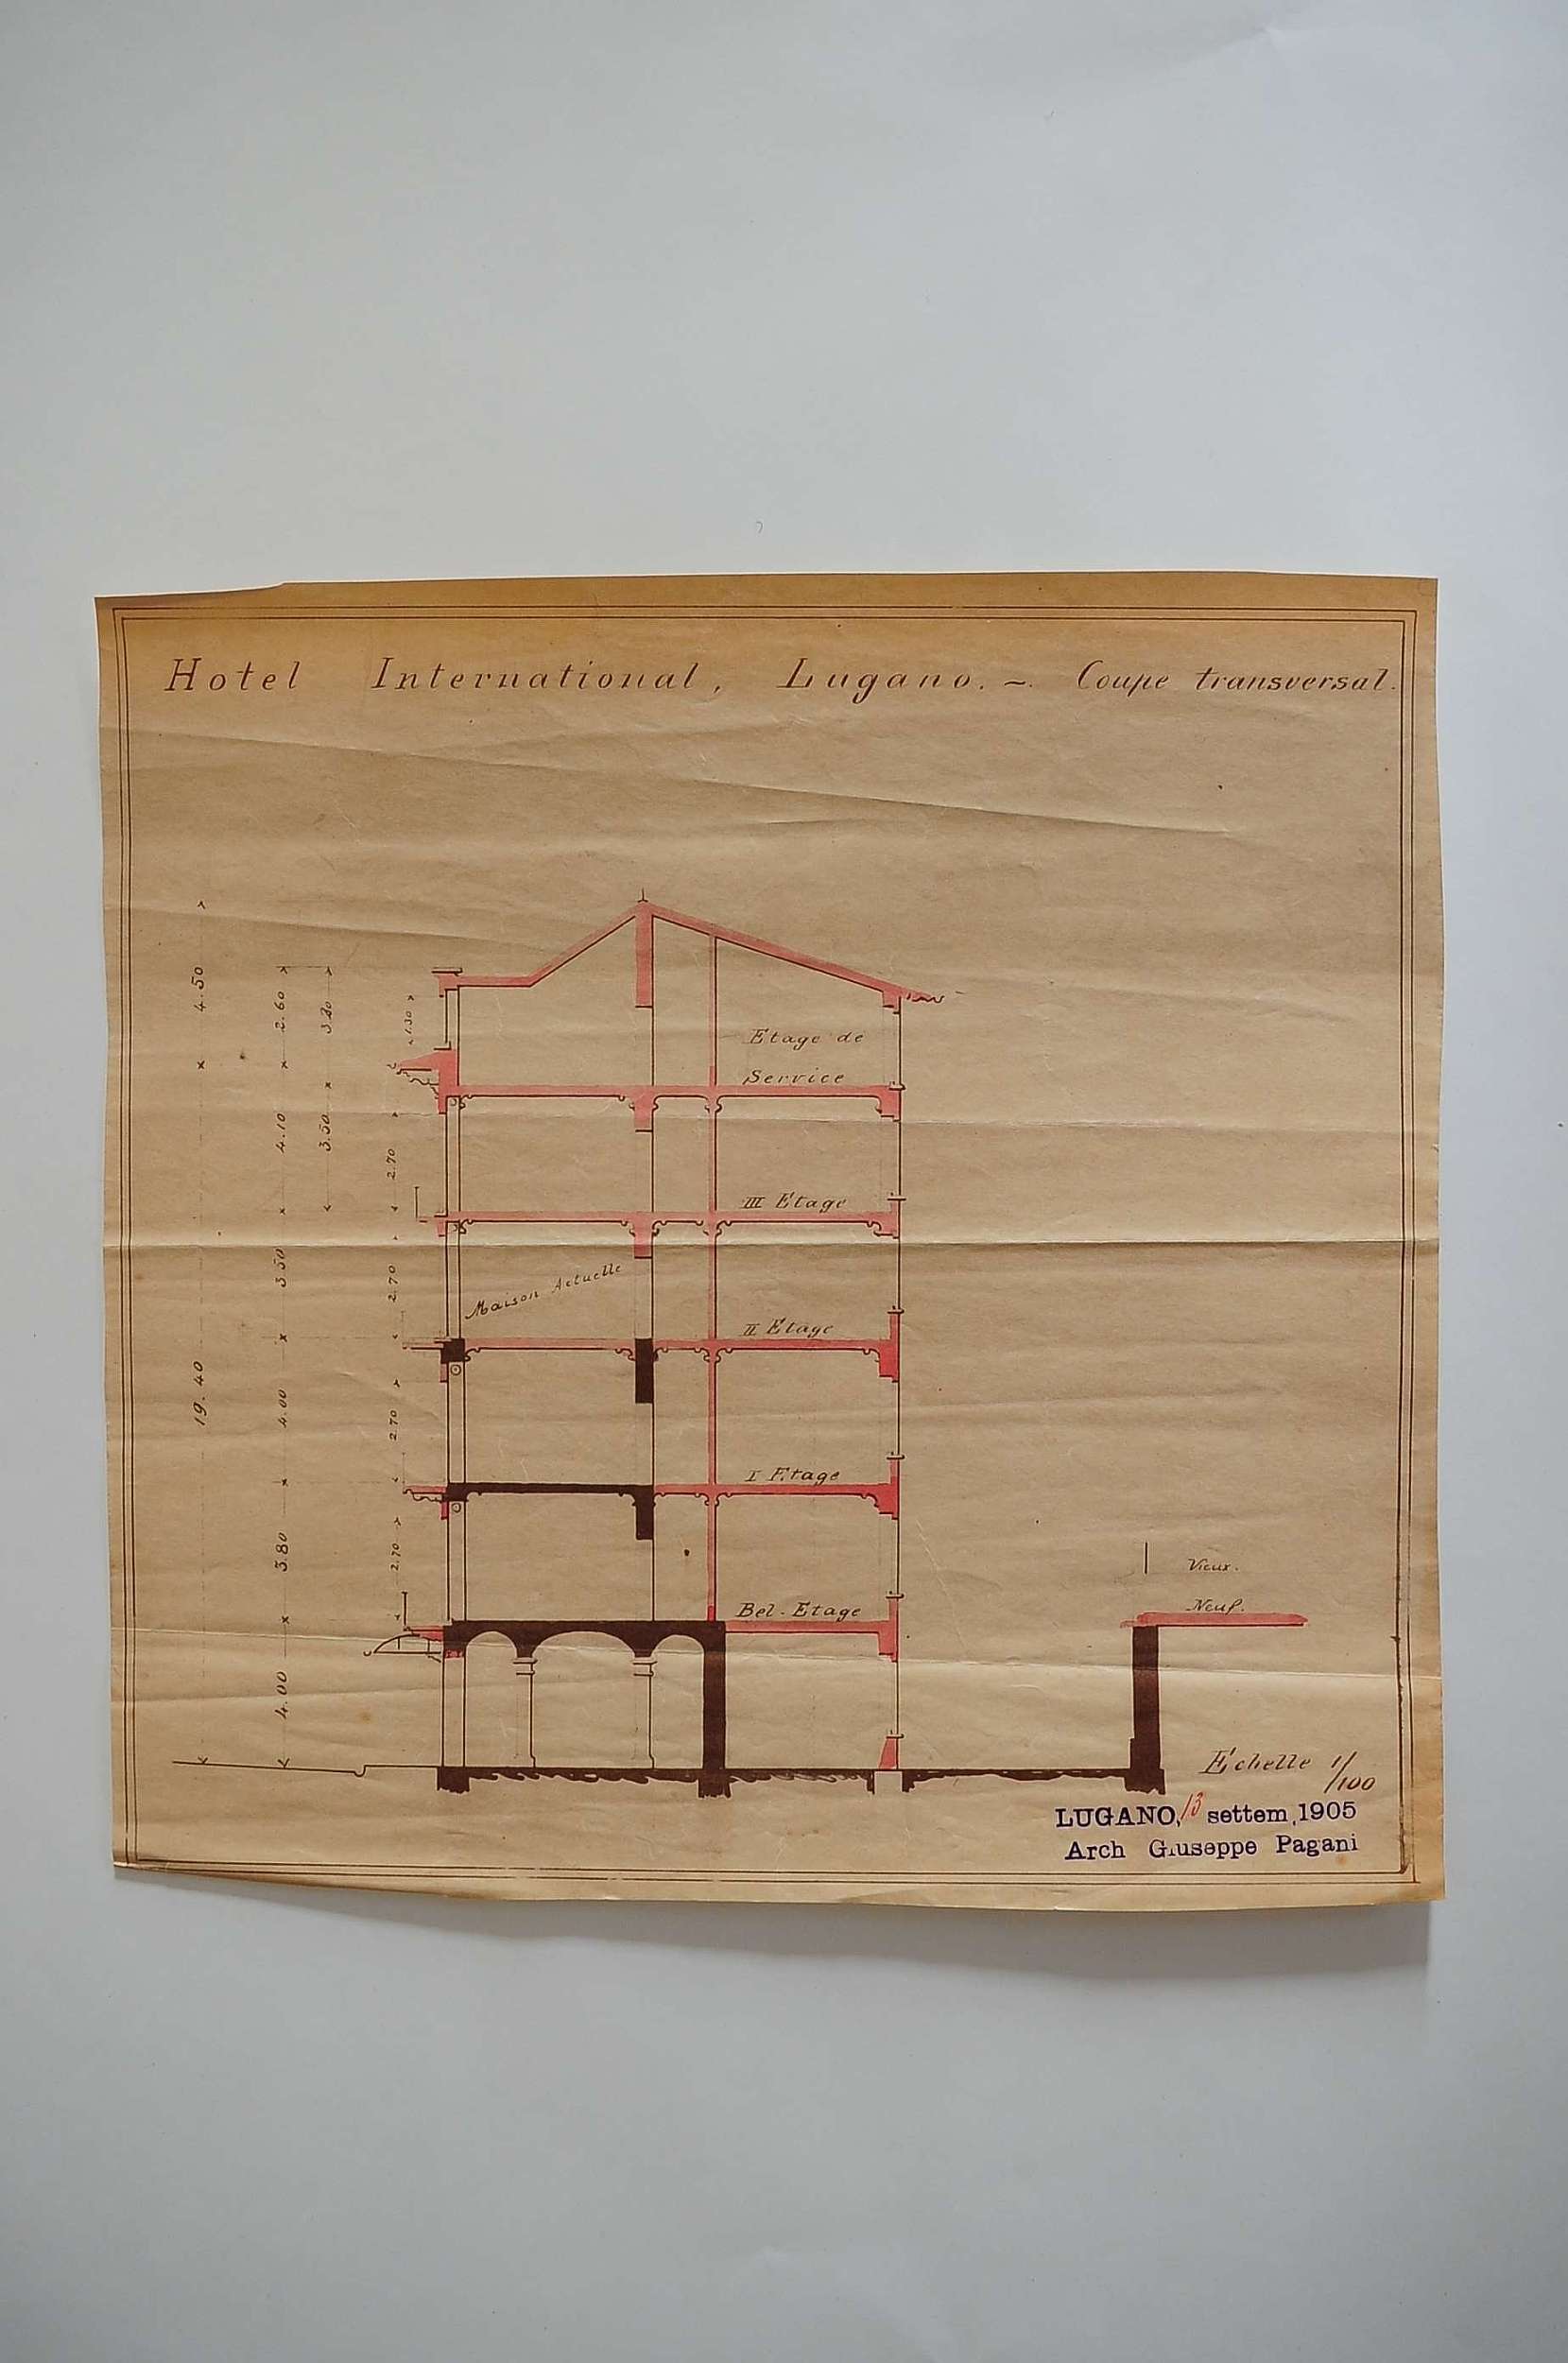 Hotel International, Lugano. ~. Coupe transversal.
4.50
2.60
3.20
1.30
Etage de
Service
4.10
3.50
2.70
III Etage
3.50
2.70
Maison Actuelle
II Etage
19.40
4.00
2.70
I Etage
3.80
2.70
Vieux.
Neuf.
Bel-Etage
4.00
Echelle 1/100
LUGANO, 13 settem, 1905
Arch Giuseppe Pagani